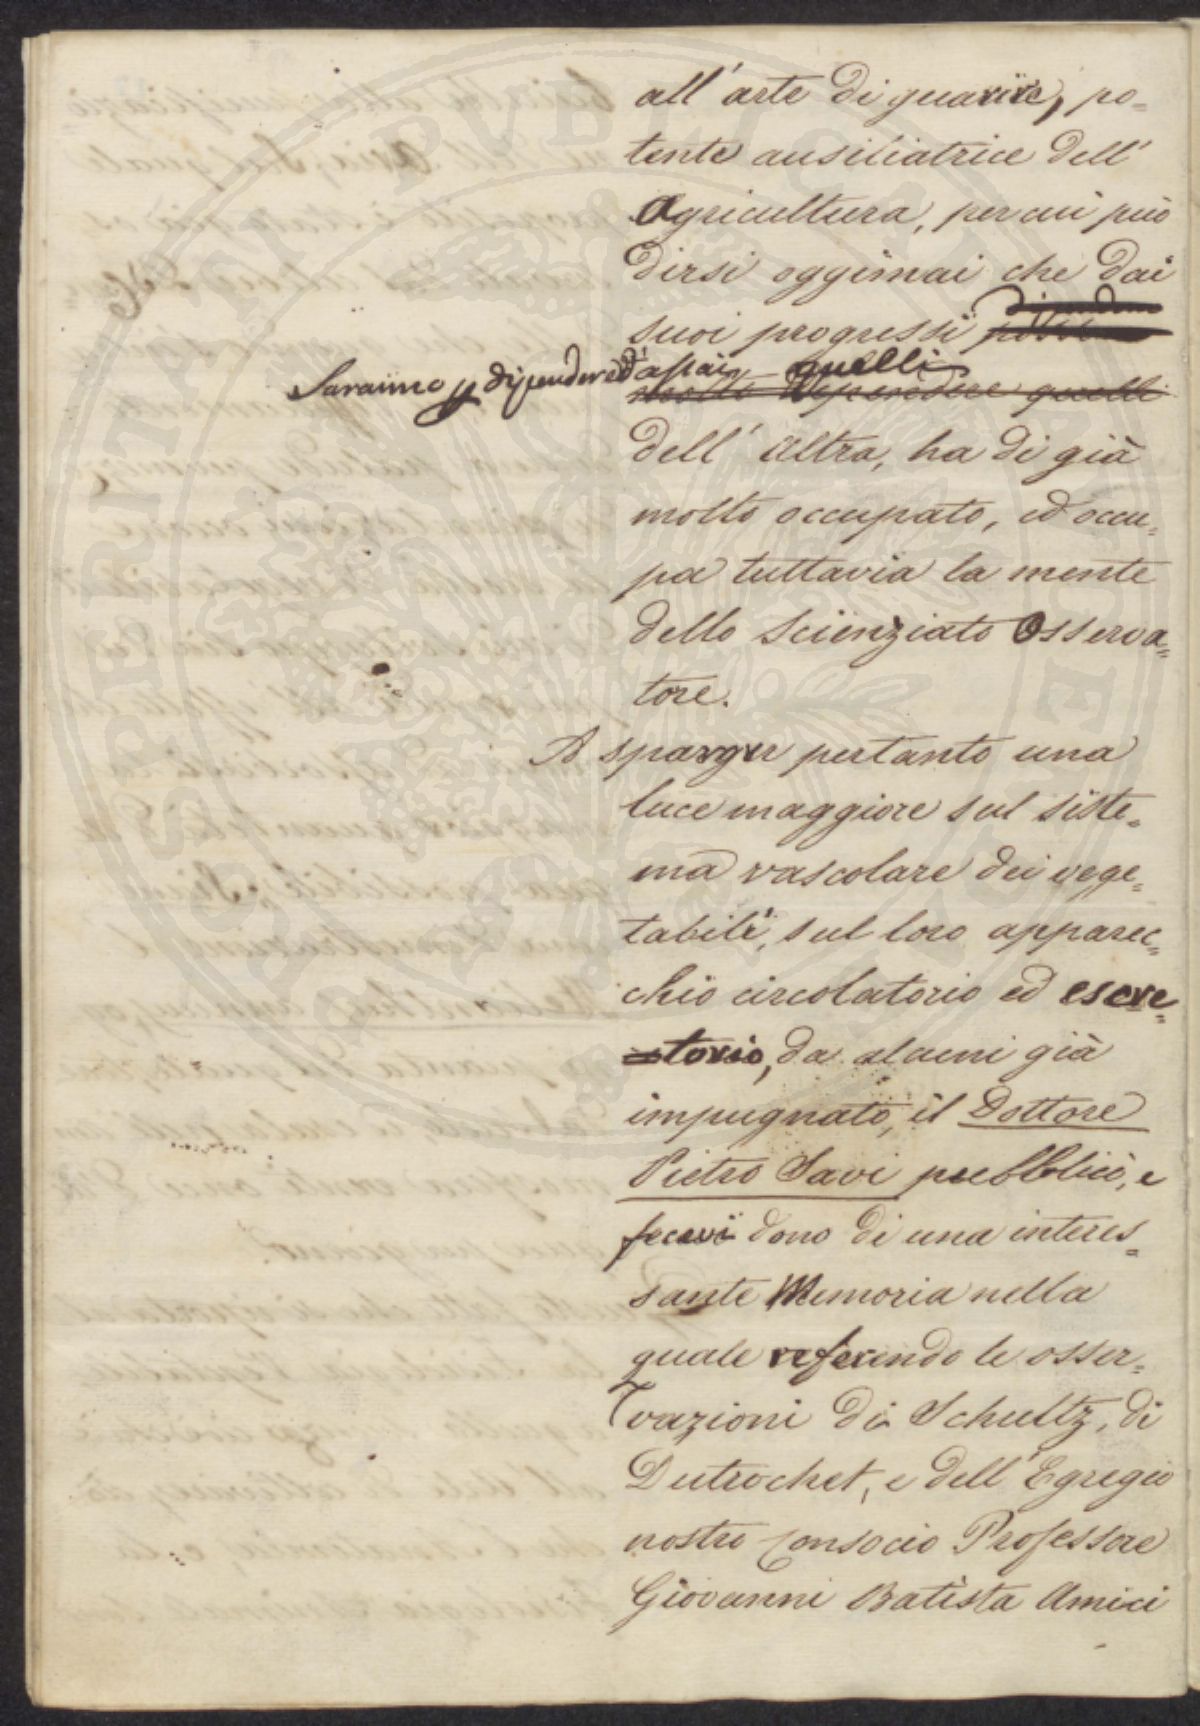 all'arte di guarire, po-
tente ausiliatrice dell'
Agricultura, per cui può
dirsi oggimai che dai
dipendono
suoi progressi posso
Saranno p dipendere d'assai quelli
molto dipendere quelli
dell'altra, ha di già
molto occupato, ed occu=
pa tuttavia la mente
dello Scienziato Osserva=
tore.
A sparger pertanto una
luce maggiore sul siste=
ma vascolare dei vege=
tabili, sul loro apparec=
chio circolatorio ed escre=
torio, da alcuni già
impugnato, il Dottore
Pietro Savi pubblicò, e
fecevi dono di una interes=
sante Memoria nella
quale referendo le osser=
vazioni di Schultz, di
Dutrochet, e dell'Egregio
nostro Consocio Professore
Giovanni Batista Amici
PROSPERITATI PUBLICAE